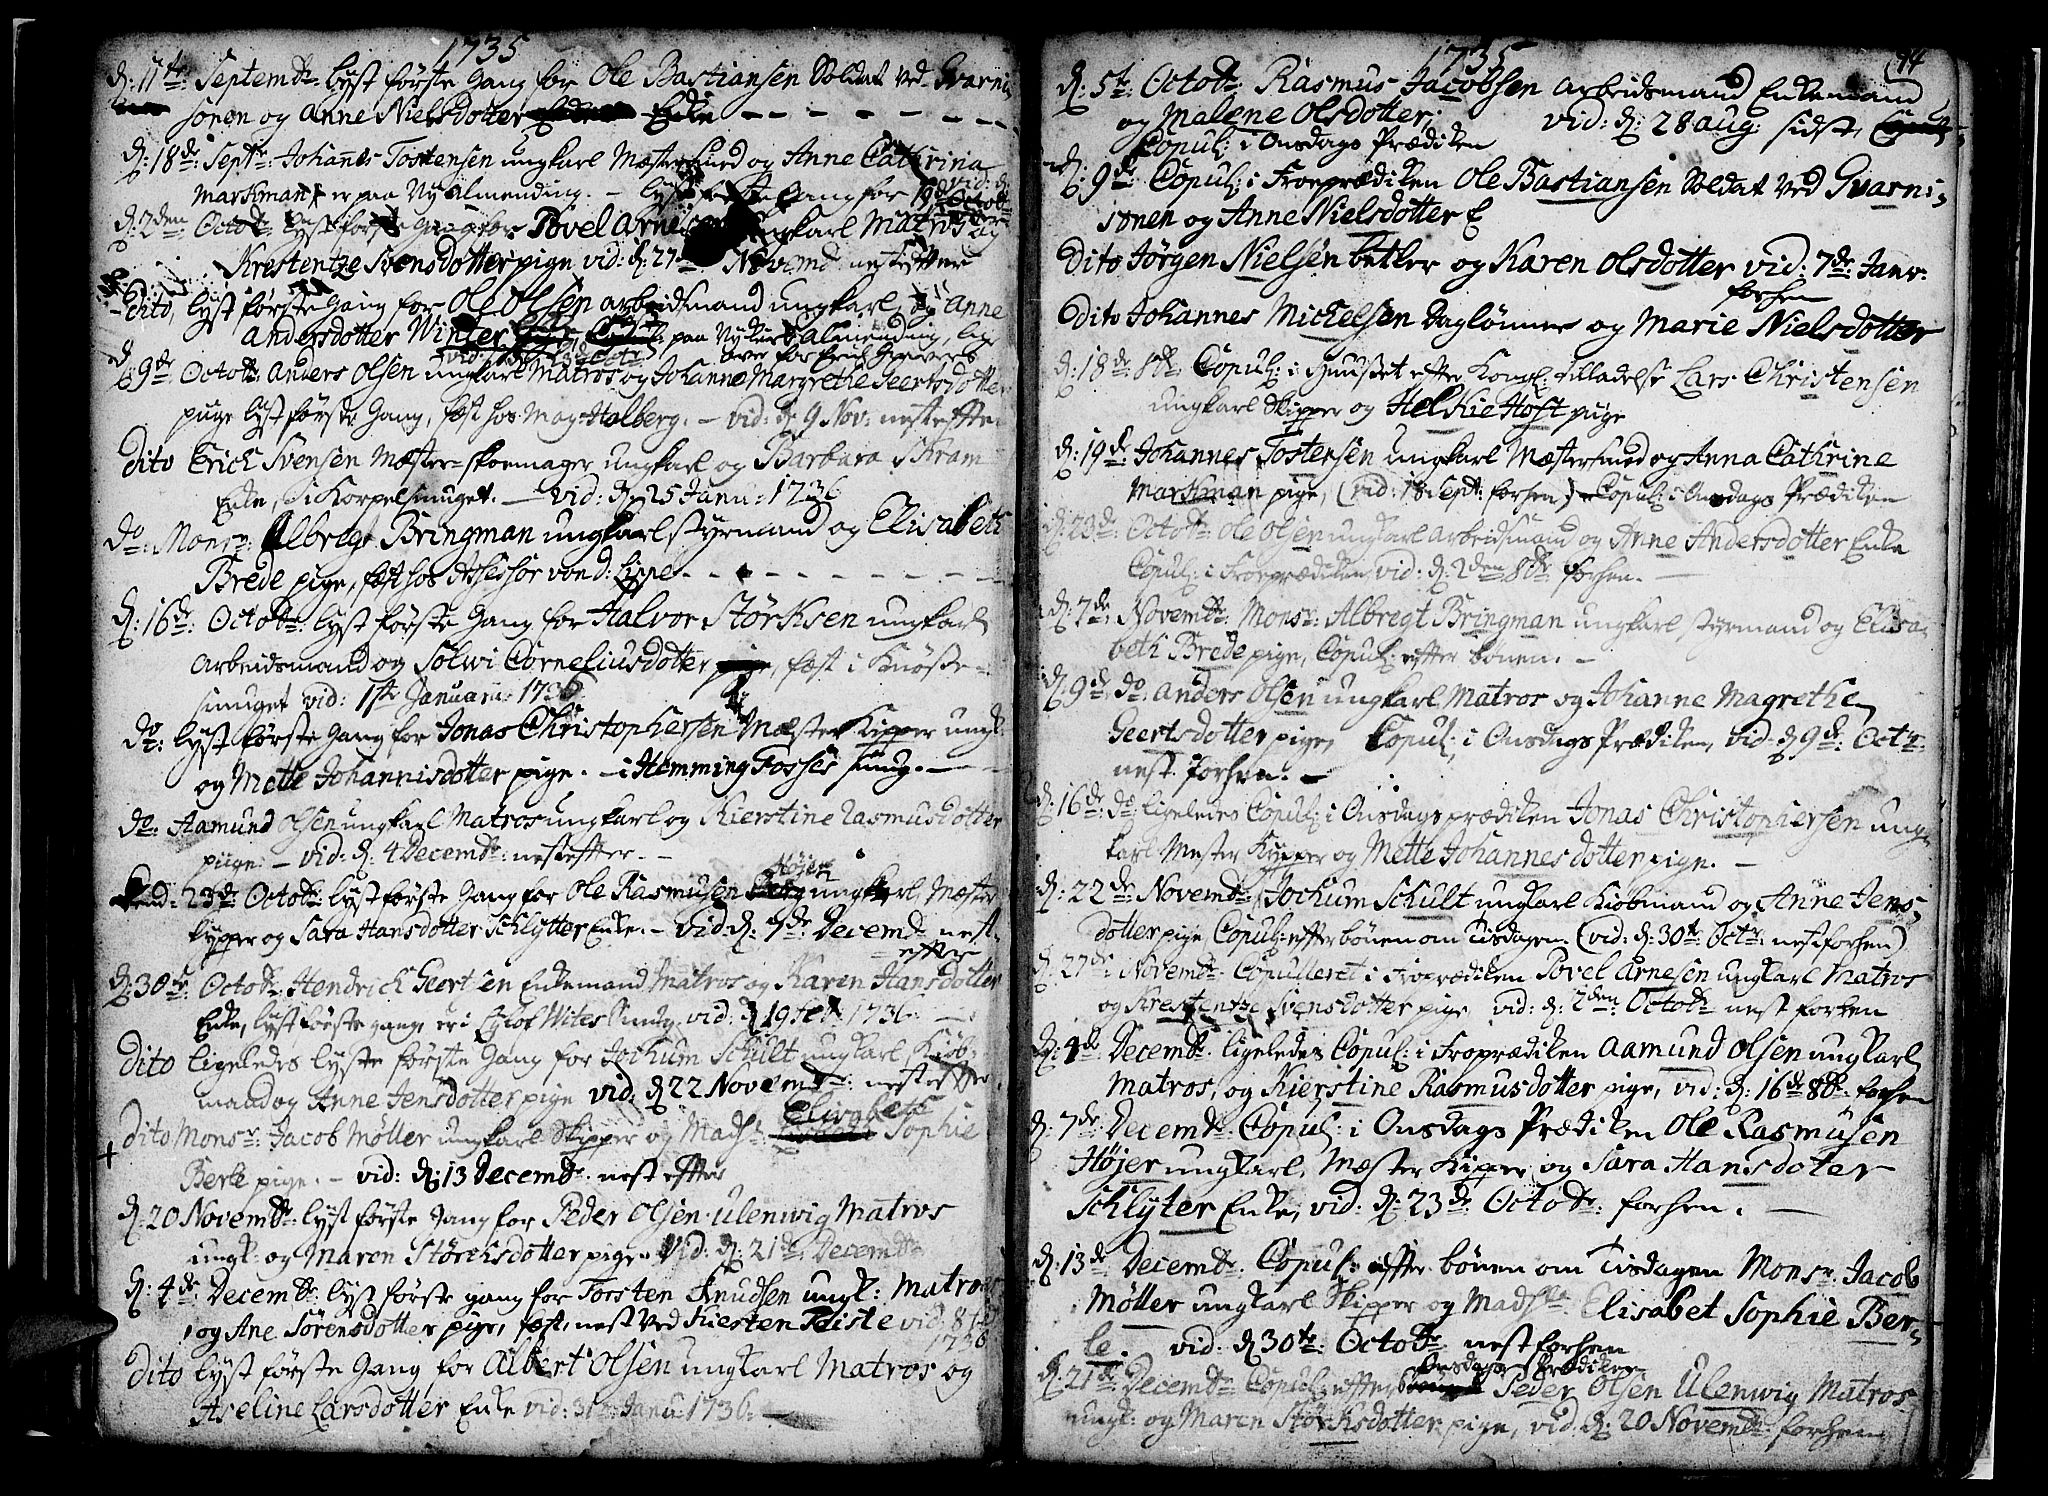 1735
d: 11te Septembr: lyst første Gang for Ole Bastiansen Soldat ved Gvarni-
sonen og Anne Nielsdotter Enke
d: 18de Septr: Johannes Tostensen ungkarl Mæstersmed og Anne Cathrina
Markman er paa Ny Almending. - lyst første Gang for vid: d: 19de Octobr
d: 2den Octobr lyst første Gang for Povel Arnesen ungkarl Matros og
Krestentze Svensdotter pige vid: d: 27de Novemb: nest effter
Dito, lyst første Gang for Ole Olsen arbeidsmand ungkarl og Anne
Andersdotter Winter Enke paa Nykirks Almending, lige
over for Erich Gravers
d: 9de Octobr: Anders Olsen ungkarl Matros og Johanne Margrethe Geertsdotter
pige lyst første Gang, fæst hos Mag: Holberg. - vid: d: 9 Nov: nest effter
Dito Erich Svensen Mæster-skoemager ungkarl og Barbara Kram
Enke, i Korpelsmuget. - vid: d: 25 Janu: 1736
Do: Monsr: Albregt Bringman ungkarl styrmand og Elisabeth
Brede pige, fæst hos Assessor von d: Lippe
d: 16de: Octobr: lyst første Gang for Halvor Størksen ungkarl
Arbeidsmand og Solwi Corneliusdotter, fæst i Knøsse-
smuget vid: 1ste Januarii: 1736
do: lyst første Gang for Jonas Christophersen Mæster Kipper ungk:
og Mette Johannisdotter pige. - i Hemming Fosses smug.
do: Aamund Olsen ungkarl Matros ungkarl og Kierstine Rasmusdotter
pige: - vid: d: 4 Decembr: nest effter.
d: 23de: Octobr: lyst første Gang for Ole Rasmusen Højer ungkarl, Mæster
kypper og Sara Hansdotter Schlytter Enke. - vid: d: 7de: Decemb nest-
effter
d: 30te: Octobr: Hendrich Geertsen Enkemand Matros og Karen Hansdotter
Enke, lyst første gang, er i Eylof Wites Smug. vid: d 19 feb: 1736.
Dito ligeledes lyste første Gang for Jochum Schult ungkarl Kiøb-
mand og Anne Jensdotter pige vid: d 22 Novembr: nest effter.
Dito Monsr: Jacob Møller ungkarl Skipper og Mads: Elisabeth Sophie
Berle pige. - vid: d: 13 Decembr. nest effter
d: 20 Novembr: lyst første Gang for Peder Olsen Ulenwig Matros
ungk: og Maren Størchsdotter pige vid: d: 21de: Decembr
d: 4de Decembr: lyst første gang for Torsten Knudsen ungk: Matros
og Ane Sørensdotter pige, fæst, nest ved Kiersten Teiste vid: 8
1736
Dito lyst første Gang for Albert Olsen ungkarl Matros og
Aseline Larsdotter Enke vid: 31 Janu: 1736.
1735
94
d: 5t: Octobr: Rasmus Jacobsen arbeidsmand Enkemand
og Malene Olsdotter; vid: d: 28 aug: sidst,
Copul: i Onsdags Prædiken
d: 9de: Copul: i Froeprædiken Ole Bastiansen Soldat ved Gvarni-
sonen og Anne Nielsdotter E
Dito Jørgen Nielsen betler og Karen Olsdotter vid: 7de: Janr:
forhen
Dito Johannes Michelsen Daglønner og Marie Nielsdotter
d: 18de 8br: Copul: i Huuset efter Kongl: tilladelse Lars Christensen
ungkarl Skipper og Helkie Høst pige
d: 19de: Johannes Tostensen ungkarl Mæstersmed og Anna Cathrine
Markman pige, (vid: 18 Sept: forhen) Copul: i Onsdags Prædiken
d: 23de: Octobr: Ole Olsen ungkarl arbeidsmand og Anne Andersdotter Enke
Copul: i Froeprædiken, vid: d: 2den 8br forhen.
d: 7de: Novembr: Monsr: Albregt Bringman ungkarl styrmand og Elisa-
beth Brede pige, Copul: effter bønen.
d: 9de do. Anders Olsen ungkarl Matros og Johanne Magrethe
Geertsdotter pige, Copul: i Onsdags Prædiken, vid: d 9de: Octr:
nest forhen.
d: 16de: do: ligeledes Copul: i Onsdags prædiken Jonas Christophersen ung-
karl Mester Kypper og Mette Johannesdotter pige.
d: 22de Novembr: Jochum Schult ungkarl Kiøbmand og Anne Jens-
dotter pige Copul: effter bønen om Tisdagen. (vid: d: 30te: Octr: nest forhen)
d: 27de: Novembr: Copulleret i Froprædiken Povel Arnesen ungkarl Matros
og Krestentze Svensdotter pige, vid: d: 2den: Octobr nest forhen
d: 4de Decembr. ligeledes Copul: i Froprædiken Aamund Olsen ungkarl
Matros, og Kierstine Rasmusdotter pige, vid: d: 16de 8br: forhen
d: 7de: Decembr: Copul: i Onsdags Prædiken Ole Rasmusen
Højer ungkarl, Mæster Kipper og Sara Hansdoter
Schlyter Enke, vid: d: 23de Octobr: forhen.
d: 13de Decembr. Copul: effter bønen om Tisdagen Monsr. Jacob
Møller ungkarl Skipper og Madslle Elisabet Sophie Ber-
le. vid: d 30te: Octobr nest forhen
Onsdags Prædiken
d: 21de Decembr Copul: effter Peder Olsen Ulenwig Matros
ungk: og Maren Størksdotter pige, vid: d: 20 Novembr: forhen